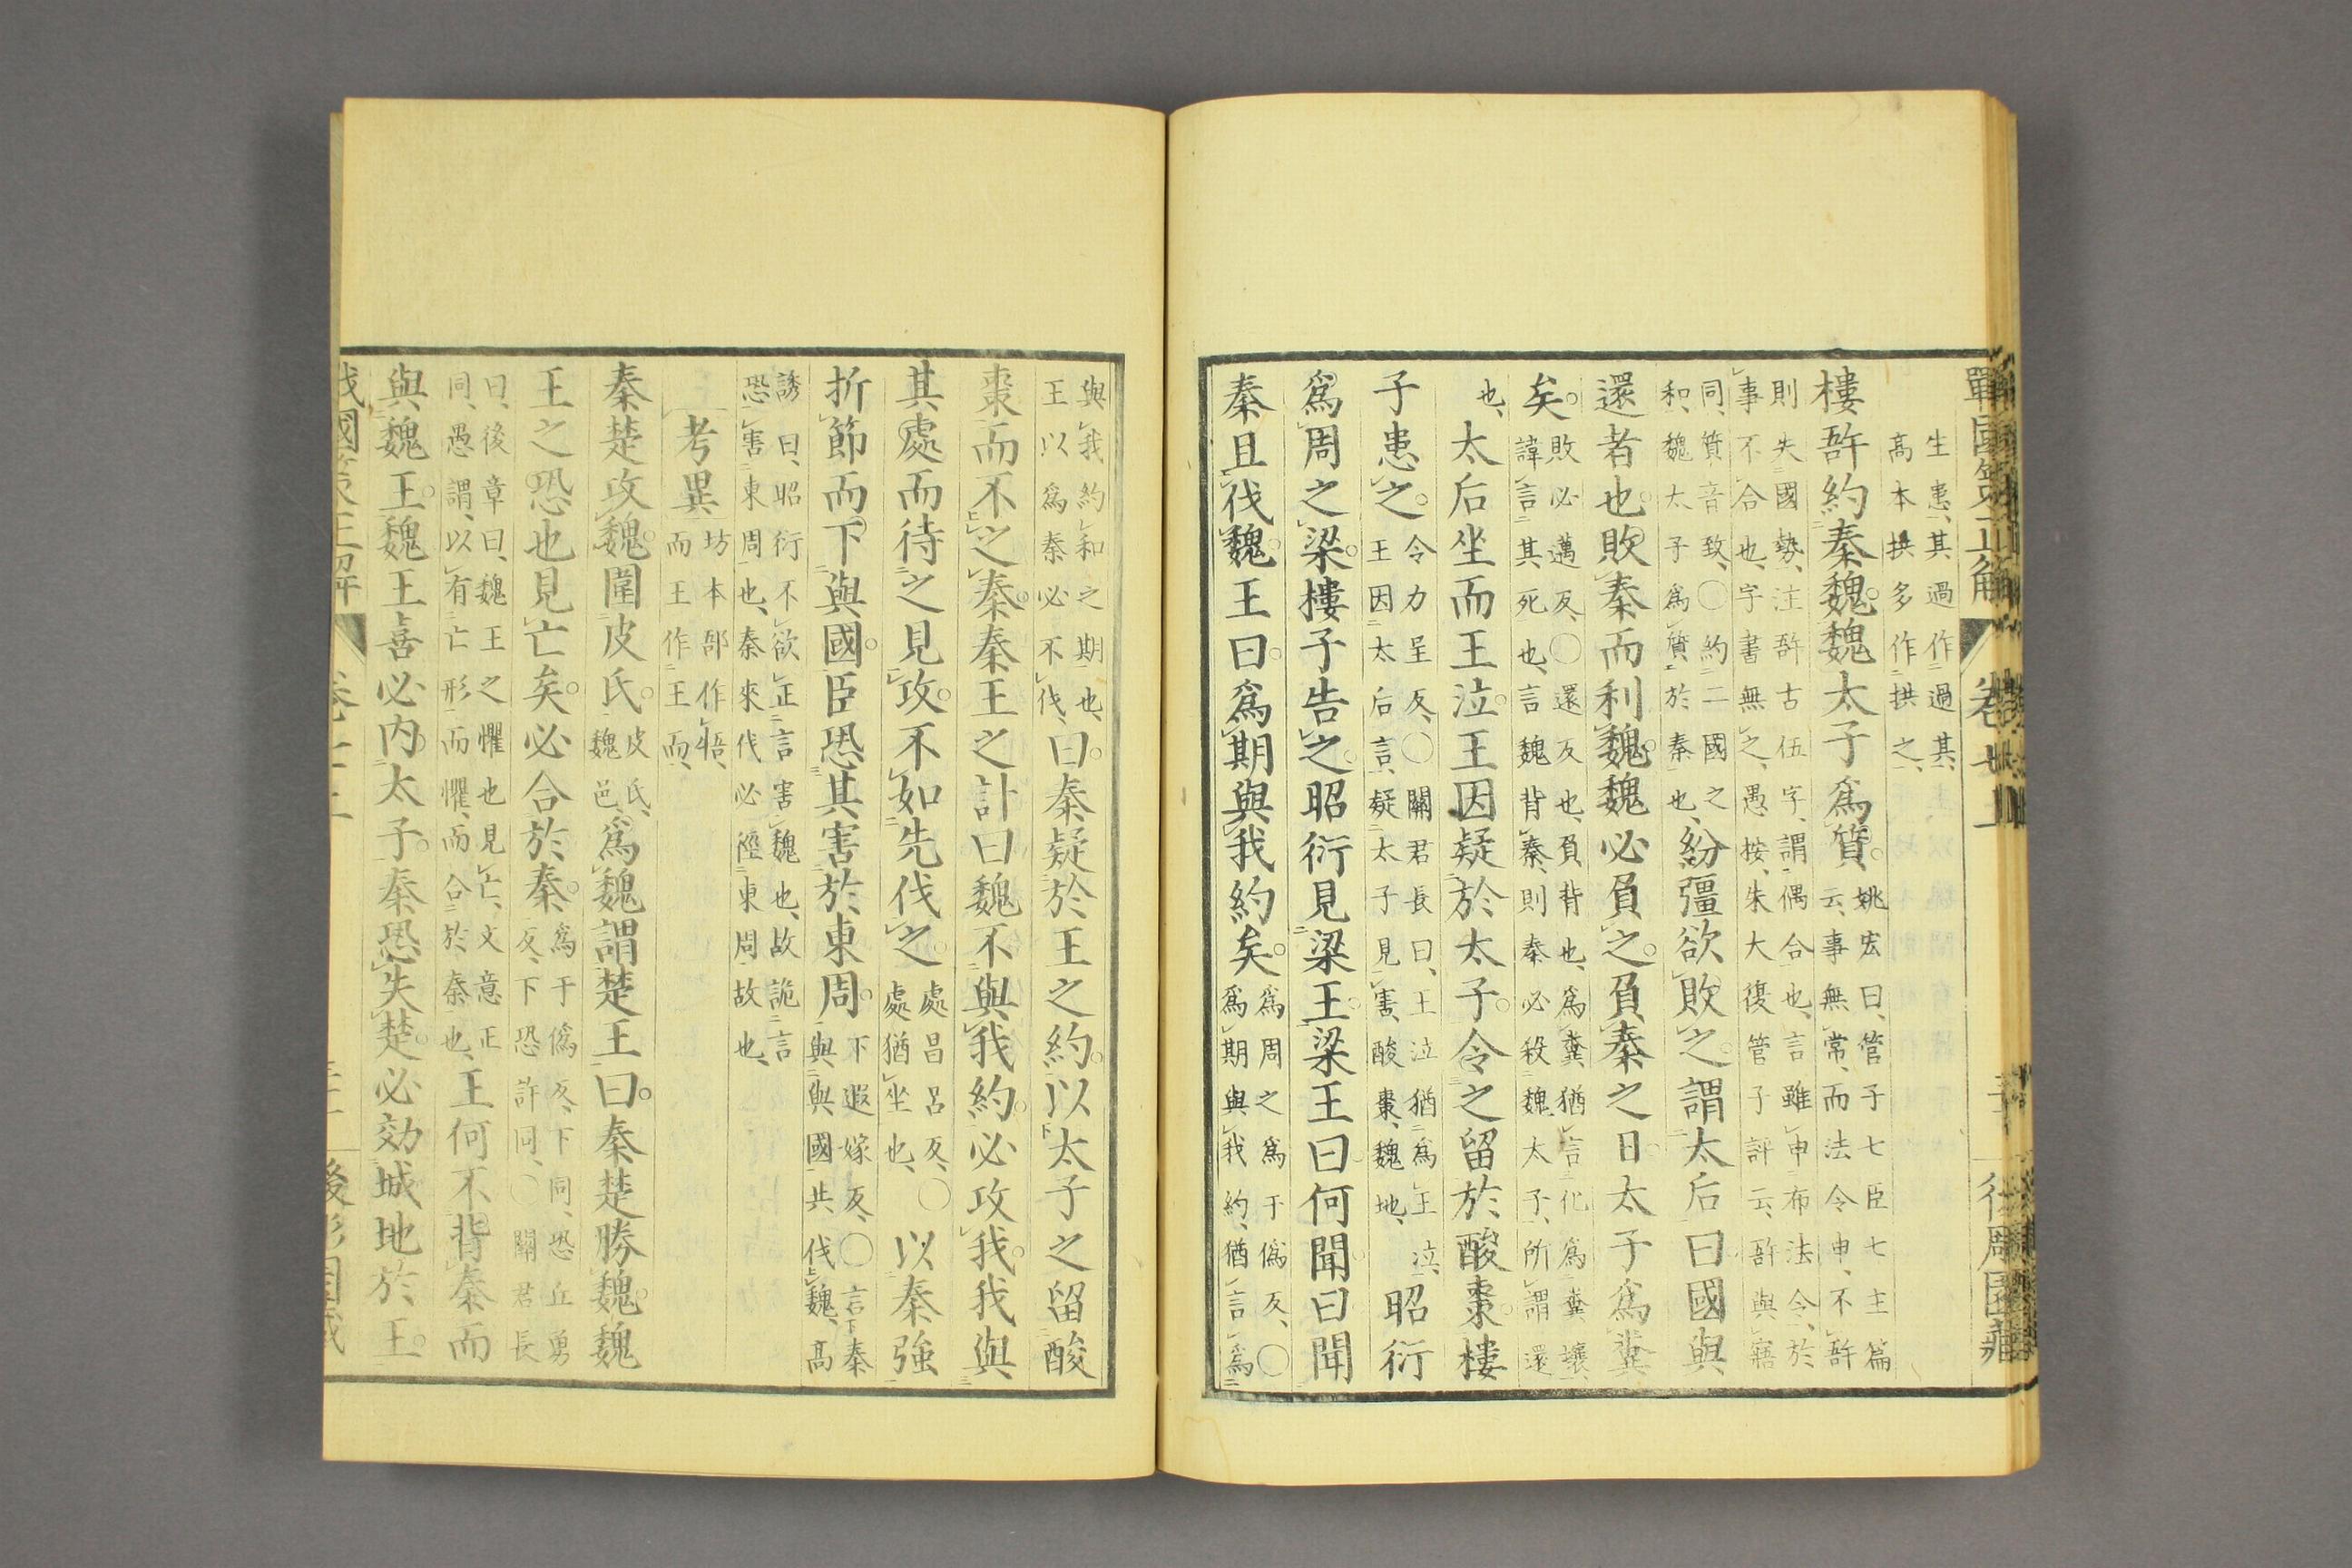 生患、其過作過其、
高本拱多作拱之、
樓䛩約秦魏。魏太子爲質。姚宏曰、管子七臣七主篇
云、事無常、而法令申、不䛩
則失國勢、注䛩古伍字、謂偶合也、言雖申布法令、於
事不合也、字書無之、愚按、朱大復管子評云、䛩與寤
同、質音致、〇約二國之
和、魏太子爲質於秦也、紛彊欲敗之。謂太后曰國與
還者也。敗秦而利魏。魏必負之。負秦之日。太子爲糞
矣。敗必邁反、〇還反也、負背也、爲糞猶言化爲糞壤、
諱言其死也、言魏背秦、則秦必殺魏太子、所謂還
也、太后坐而王泣。王因疑於太子。令之留於酸棗。樓
子患之。令力呈反、〇關君長曰、王泣猶爲王泣、
王因太后言、疑太子見害、酸棗、魏地、昭衍
爲周之梁。樓子告之。昭衍見梁王。梁王曰何聞。曰聞
秦且伐魏。王曰。爲期與我約矣。爲周之爲于僞反、〇
爲期與我約、猶言爲
與我約和之期也、
王以爲秦必不伐、曰。秦疑於王之約。以太子之留酸
棗而不之秦。秦王之計曰魏不與我約。必攻我。我與
其處而待之見攻。不如先伐之。處昌呂反、〇
處猶坐也、以秦強
折節而下與國。臣恐其害於東周。下遐嫁反、〇言下秦
與與國共伐魏、高
誘曰、昭衍不欲正言害魏也、故詭言
恐害東周也、秦來伐必徑東周故也、
考異坊本部作牾、
而王作王而、
秦楚攻魏。圍皮氏。皮氏、
魏邑、爲魏謂楚王曰。秦楚勝魏。魏
王之恐也見亡矣。必合於秦。爲于僞反、下同、恐丘勇
反、下恐許同、〇關君長
曰、後章曰、魏王之懼也見亡、文意正
同、愚謂、以有亡形而懼、而合於秦也、王何不背秦而
與魏王。魏王喜必内太子。秦恐失楚。必効城地於王。